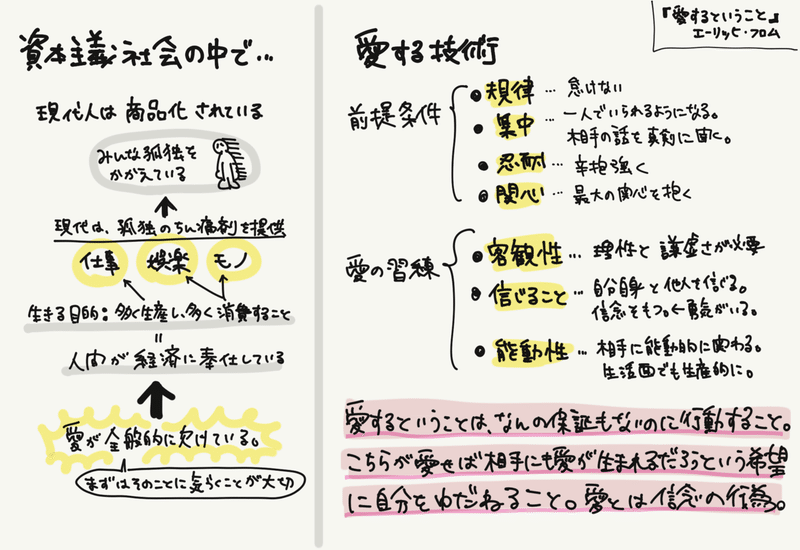 資本主義社会の中で…
現代人は 商品化 されている
みんな孤独を
かかえている
現代は、孤独のちん痛剤を提供
仕事 娯楽 モノ
生きる目的:多く生産し、多く消費すること
=
人間が経済に奉仕している
愛が全般的に欠けている。
まずはそのことに気づくことが大切
『愛するということ』
エーリッヒ・フロム
愛する技術
前提条件
規律 … 怠けない
集中 … 一人でいられるようになる。
相手の話を真剣に聞く。
忍耐 … 辛抱強く
関心 … 最大の関心を抱く
愛の習練
客観性 … 理性と謙虚さが必要
信じること … 自分自身と他人を信じる。
信念をもつ。←勇気がいる。
能動性 … 相手に能動的に関わる。
生活面でも生産的に。
愛するということは、なんの保証もないのに行動すること。
こちらが愛せば相手にも愛が生まれるだろうという希望
に自分をゆだねること。愛とは信念の行為。